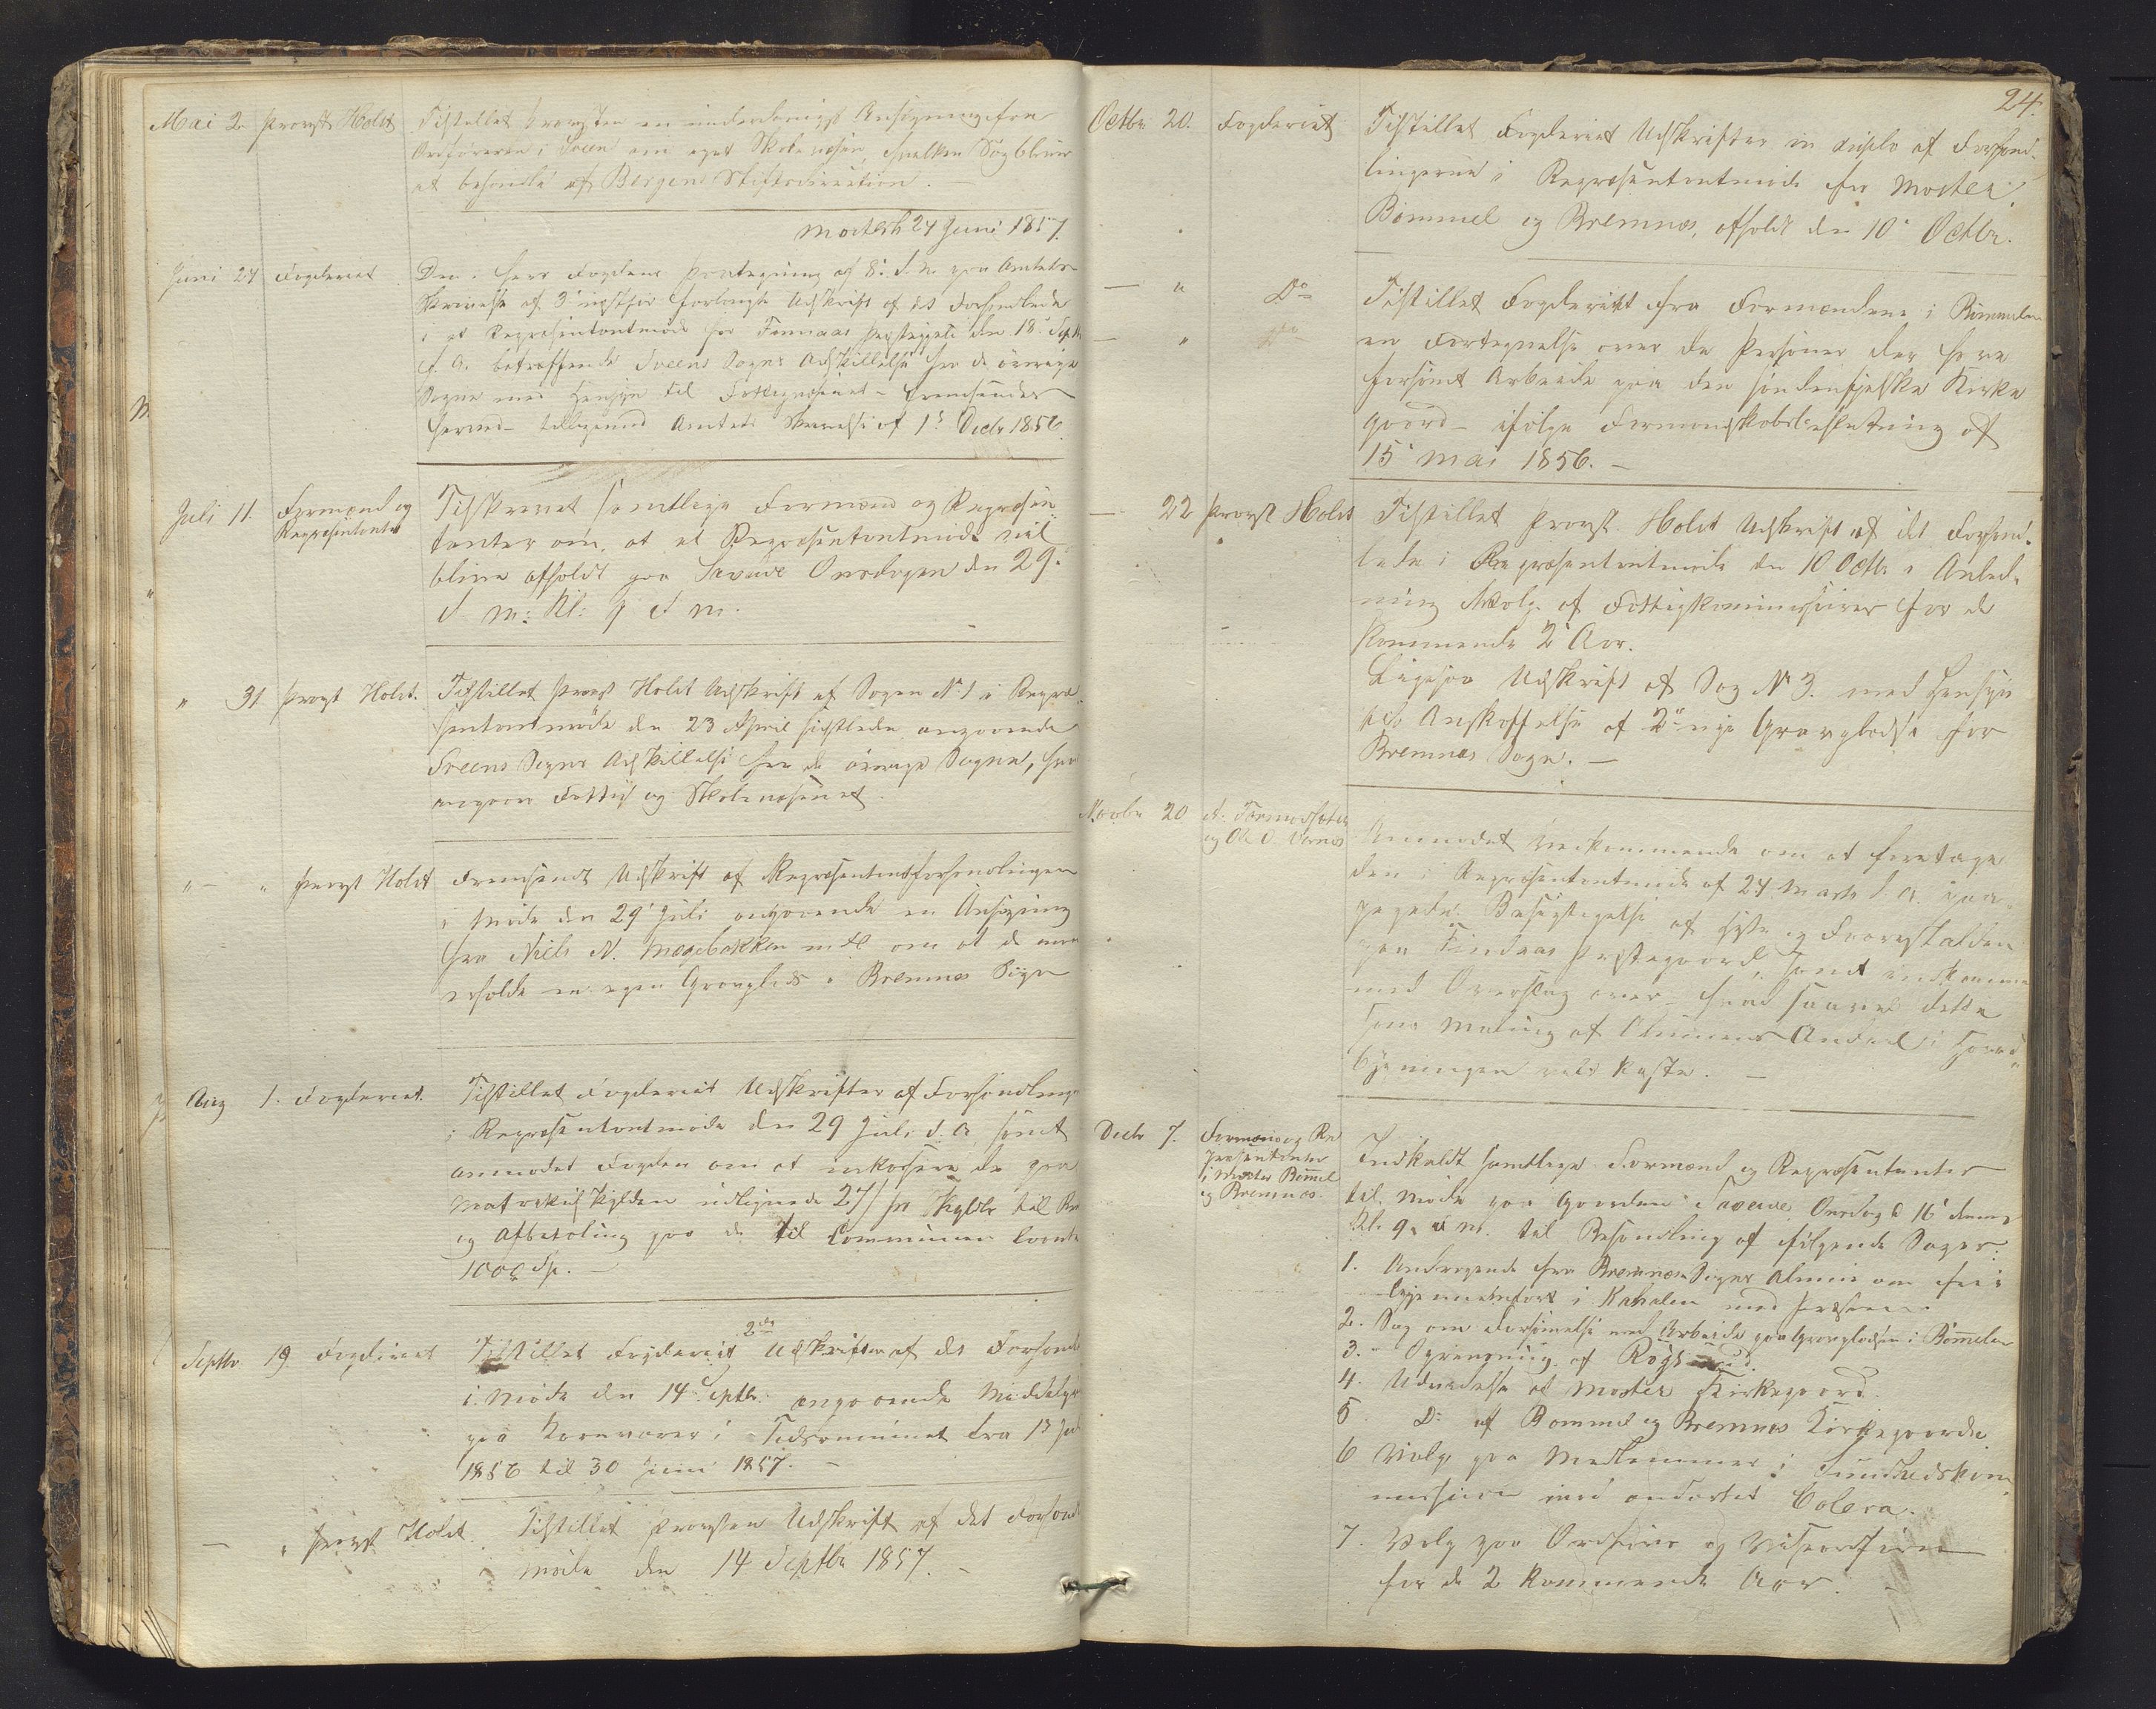 Mai 2. Provst Holst Tilstillet Provsten en underdanigst Ansøgning fra
Ordføreren i Sveen om eget Skolevæsen, hvilken Sag bliver
at behandle af Bergens Stiftsdirection.
Moster 24 Juni 1857.
Juni 24 Fogderiet Den Herr Fogdens Paategning af 8. d. M. paa Amtets
Skrivelse af 3 næstfør forlangte Udskrift af det Forhandlede
i et Repræsentantmøde for Finnaas Præstegjeld den 18. Septbr
f. A. betræffende Sveens Sogns Adskillelse fra de øvrige
Sogne med Hensyn til Fattigvæsenet fremsendes
herved tilligemed Amtets Skrivelse af 1s Decbr 1856.
Juli 11. Formænd og
Repræsentanter
Tilskrevet samtlige Formænd og Repræsen
tanter om, at et Repræsentantmøde vil
blive afholdt paa Siavæ Onsdagen den 29.
d. M: Kl: 9 F M.
" 31 Provst Holst. Tilstillet Provst Holst Udskrift af Sagen No 1 i Repræ
sentantmøde den 23 April sidstleden angaaende
Sveens Sogns Adskillelse fra de øvrige Sogne, hva
angaar Fattig og Skolevæsenet.
" - " Provst Holst Fremsendt Udskrift af Repræsentantforhandlingen
i Møde den 29 Juli angaaende en Ansøgning
fra Niels N. Mægebakken m fl. om at de maa
erholde en egen Gravplads i Bremnes Sogn
Aug 1. Fogderiet. Tilstillet Fogderiet Udskrifter af Forhandling
i Repræsentantmøde den 29 Juli d. A. samt
anmodet Fogden om at inkassere de paa
Matrikulskylden udlignede 27 ß pr Skylddlr til Ren
og Afbetaling paa de til Communen laante
1000 Sp.
Septbr 19 Fogderiet Tilstillet Fogderiet 2de Udskrifter af det Forhand
i Møde den 14 Septbr. angaaende Middelpri
paa Kornvarer i Tidsrummet fra 1s Jul
1856 til 30 Juni 1857.
— " Provst Holst. Tilstillet Provsten Udskrift af det Forhand
i Møde den 14 Septbr 1857.
24.
Octbr. 20. Fogderiet Tilstillet Fogderiet Udskrifter in duplo af Forhand
lingerne i Repræsentantmøde for Moster,
Bømmel og Bremnæs, afholdt den 10 Octbr.
— " Do Tilstillet Fogderiet fra Formændene i Bømmelen
— " Do en Fortegnelse over de Personer der have
forsømt Arbeide paa den søndenfjelske Kirke
gaard ifølge Formandskabsbeslutning af
15 Mai 1856.
— 22 Provst Holst Tilstillet Provst Holst Udskrift af det Forhand
lede i Repræsentantmøde den 10 Octbr i Anled
ning Valg af Fattigkommissairer for de
kommende 2 Aar.
Ligesaa Udskrift af Sag No 3. med Hensyn
til Anskaffelse af 2de nye Gravpladse for
Bremnæs Sogn.
Novbr 20 Anmodet Vedkommende om at foretage
den i Repræsentantmøde af 24 Marts d. A. paa
pegede Besigtigelse af
paa Finnaas Præstegaard, samt indkomme
med Overslag over hvad saavel dette
som Maling af Almuens Andeel i Hoved
bygningen vil koste.
Decbr 7. Formænd og Re
præsentanter
i Moster Bømmel
og Bremnæs.
Indkaldt samtlige Formænd og Repræsentanter
til Møde paa Gaarden Siavæ Onsdag d 16 dennes
Kl. 9 F M. til Behandling af følgende Sager:
1. Andragende fra Bremnæs Sogns Almue om fri
Gjennemfart i Kanalen med
2. Sag om Forsømmelse ved Arbeide paa Gravpladsen i Bømmelen
3. Oprensning af Røgsund.
4. Udvidelse af Moster Kirkegaard.
5. Do af Bømmel og Bremnæs Kirkegaarde
6 Valg paa Medlemmer i Sundhedskom
missionen imod Colera.
7. Valg paa Ordfører og Viseordfører
for de 2 kommende Aar.